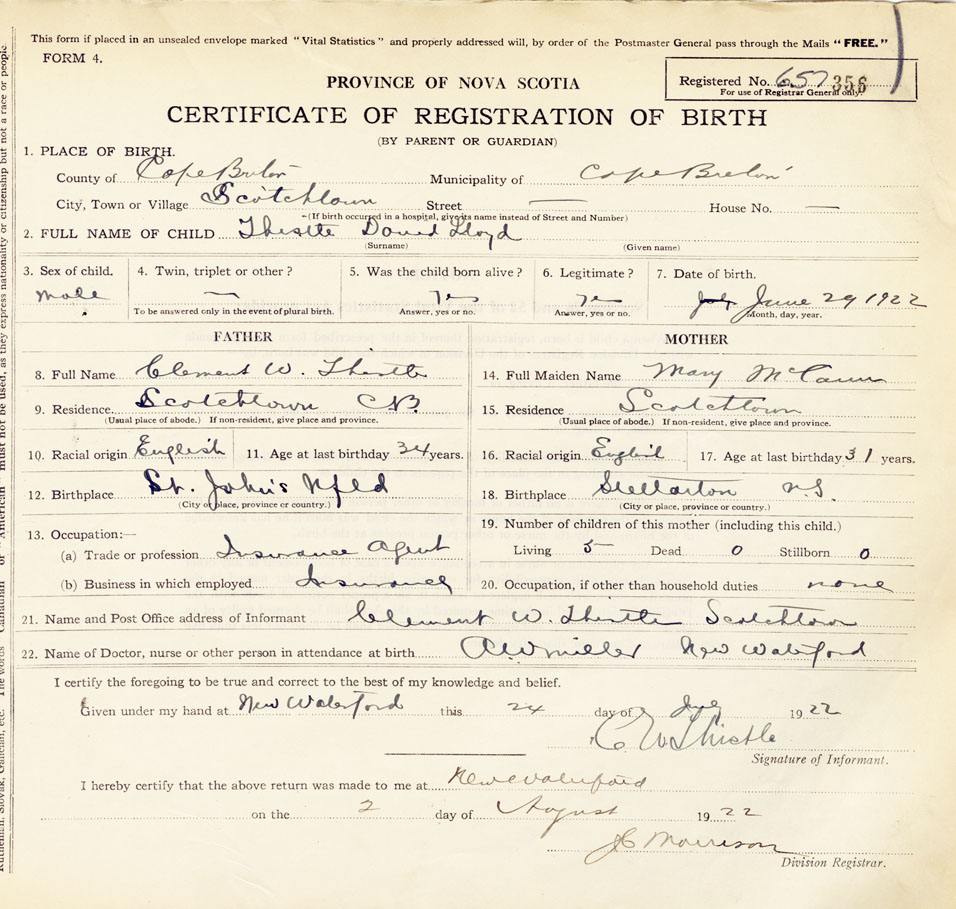 This form if placed in an unsealed envelope marked "Vital Statistics" and properly addressed will, by order of the Postmaster General pass through the Mails "FREE."
FORM 4.
PROVINCE OF NOVA SCOTIA
Registered No. 657 356
For use of Registrar General only.
CERTIFICATE OF REGISTRATION OF BIRTH
(BY PARENT OR GUARDIAN)
1. PLACE OF BIRTH.
County of Cape Breton Municipality of Cape Breton
City, Town or Village Scotchtown Street — House No. —
(If birth occurred in a hospital, give its name instead of Street and Number)
2. FULL NAME OF CHILD Thistle David Lloyd
(Surname) (Given name)
3. Sex of child. 4. Twin, triplet or other? 5. Was the child born alive? 6. Legitimate? 7. Date of birth.
male — yes yes June 29 1922
To be answered only in the event of plural birth. Answer, yes or no. Answer, yes or no. Month, day, year.
FATHER MOTHER
8. Full Name Clement W. Thistle 14. Full Maiden Name Mary McCann
9. Residence. Scotchtown C.B. 15. Residence Scotchtown
(Usual place of abode.) If non-resident, give place and province. (Usual place of abode.) If non-resident, give place and province.
10. Racial origin English 11. Age at last birthday 34 years. 16. Racial origin English 17. Age at last birthday 31 years.
12. Birthplace St. John's Nfld 18. Birthplace Stellarton N.S.
(City or place, province or country.) (City or place, province or country.)
19. Number of children of this mother (including this child.)
13. Occupation:—
(a) Trade or profession Insurance Agent Living 5 Dead 0 Stillborn 0
(b) Business in which employed Insurance 20. Occupation, if other than household duties none
21. Name and Post Office address of Informant Clement W. Thistle Scotchtown
22. Name of Doctor, nurse or other person in attendance at birth. AW Miller New Waterford
I certify the foregoing to be true and correct to the best of my knowledge and belief.
Given under my hand at New Waterford this 24 day of 1922
C W Thistle
Signature of Informant.
I hereby certify that the above return was made to me at New Waterford
on the 2 day of August 1922
JC Morrison
Division Registrar.
Ruthenian, Slovak, Galician, etc. The words "Canadian" or "American" must not be used, as they express nationality or citizenship but not a race or people.